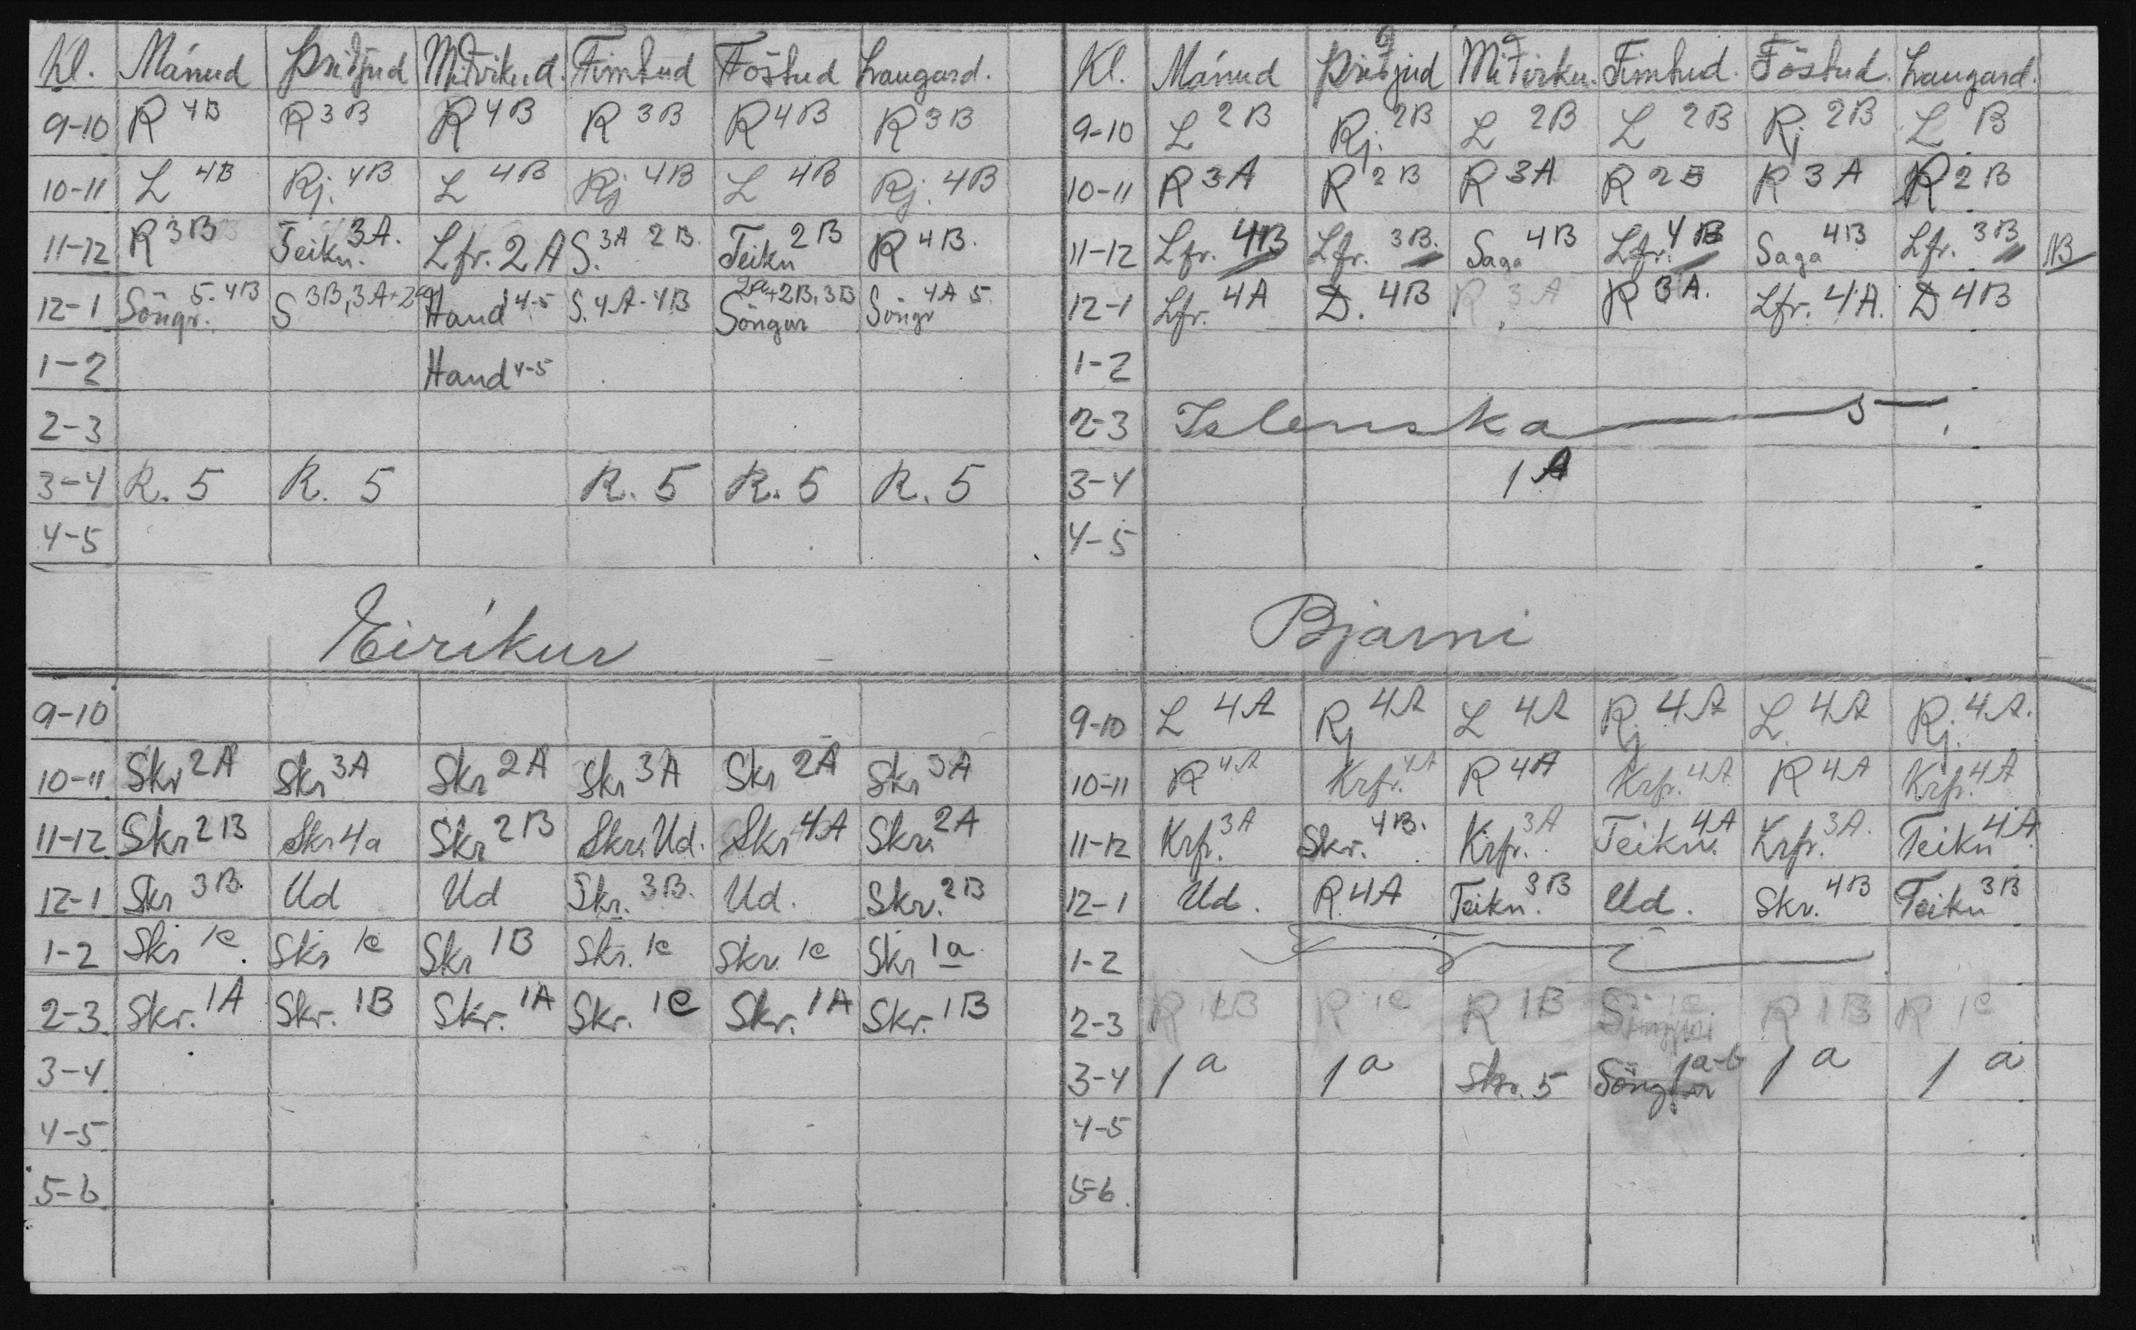 Kl. Mánud Þriðjud Miðvikud. Fimtud Föstud Laugard.
9-10 R 4B R 3B R 4B R 3B R 4B R 3B
10-11 L 4B Rj. 4B L 4B Rj 4B L 4B Rj. 4B
11-12 R 3B Teikn. 3A. Lfr. 2A S. 3A 2B. Teikn 2B R 4B.
12-1 Söngr. 5-4B S 3B, 3A+2a Hand 4-5 S. 4A-4B 2a+2B, 3B Söngur Söngr 4A 5
1-2 Hand 4-5
2-3
3-4 R. 5 R. 5 R. 5 R. 5 R. 5
4-5
Eiríkur
9-10
10-11 Skr 2A Skr 3A Skr 2A Skr 3A Skr 2A Skr 3A
11-12 Skr 2B Skr 4a Skr 2B Skr. Ud. Skr 4A Skr. 2A
12-1 Skr 3B. Ud Ud Skr. 3B. Ud. Skr. 2B
1-2 Skr 1c. Skr 1c Skr 1B Skr. 1c Skr. 1c Skr 1a
2-3 Skr. 1A Skr. 1B Skr. 1A Skr. 1C Skr. 1A Skr. 1B
3-4
4-5
5-6
Kl. Mánud Þriðjud Miðvirku. Fimtud. Föstud. Laugard.
9-10 L 2B Rj. 2B L 2B L 2B Rj 2B L B
10-11 R 3A R 2B R 3A R 2B R 3A R 2B
11-12 Lfr. 4B Lfr. 3B. Saga 4B Lfr. 4B Saga 4B Lfr. 3B NB
12-1 Lfr. 4A D. 4B R 3A R 3A. Lfr. 4A. D 4B
1-2
2-3 Islenska 5
3-4 1A
4-5
Bjarni
9-10 L 4A Rj 4A L 4A Rj 4A L 4A Rj. 4A.
10-11 R 4A Krfr. 4A R 4A Krfr. 4A R 4A Krfr. 4A
11-12 Krfr. 3A Skr. 4B. Krfr. 3A Teikn. 4A Krfr. 3A. Teikn 4A
12-1 Ud. R. 4A Teikn. 3B Ud. Skr. 4B Teikn 3B
1-2
2-3 R 1B R 1c R 1B 1c R 1B R 1c
3-4 1a 1a Skr. 5 Söngur 1a-b 1a 1a
4-5
5-6.